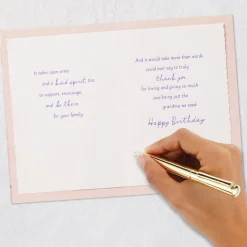 It takes open arms
and a kind spirit too
to support, encourage,
and be there
for your family.
And it would take more than words
could ever say to truly
thank you
for loving and giving so much
and being just the
grandma we need.
Happy Birthday